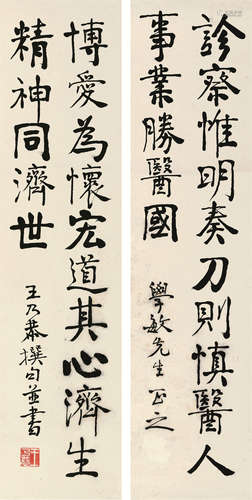 診察惟明奏刀則慎醫人
事業勝醫國
學敏先生正之
博愛為懷宏道其心濟生
精神同濟世
王乃恭撰句並書